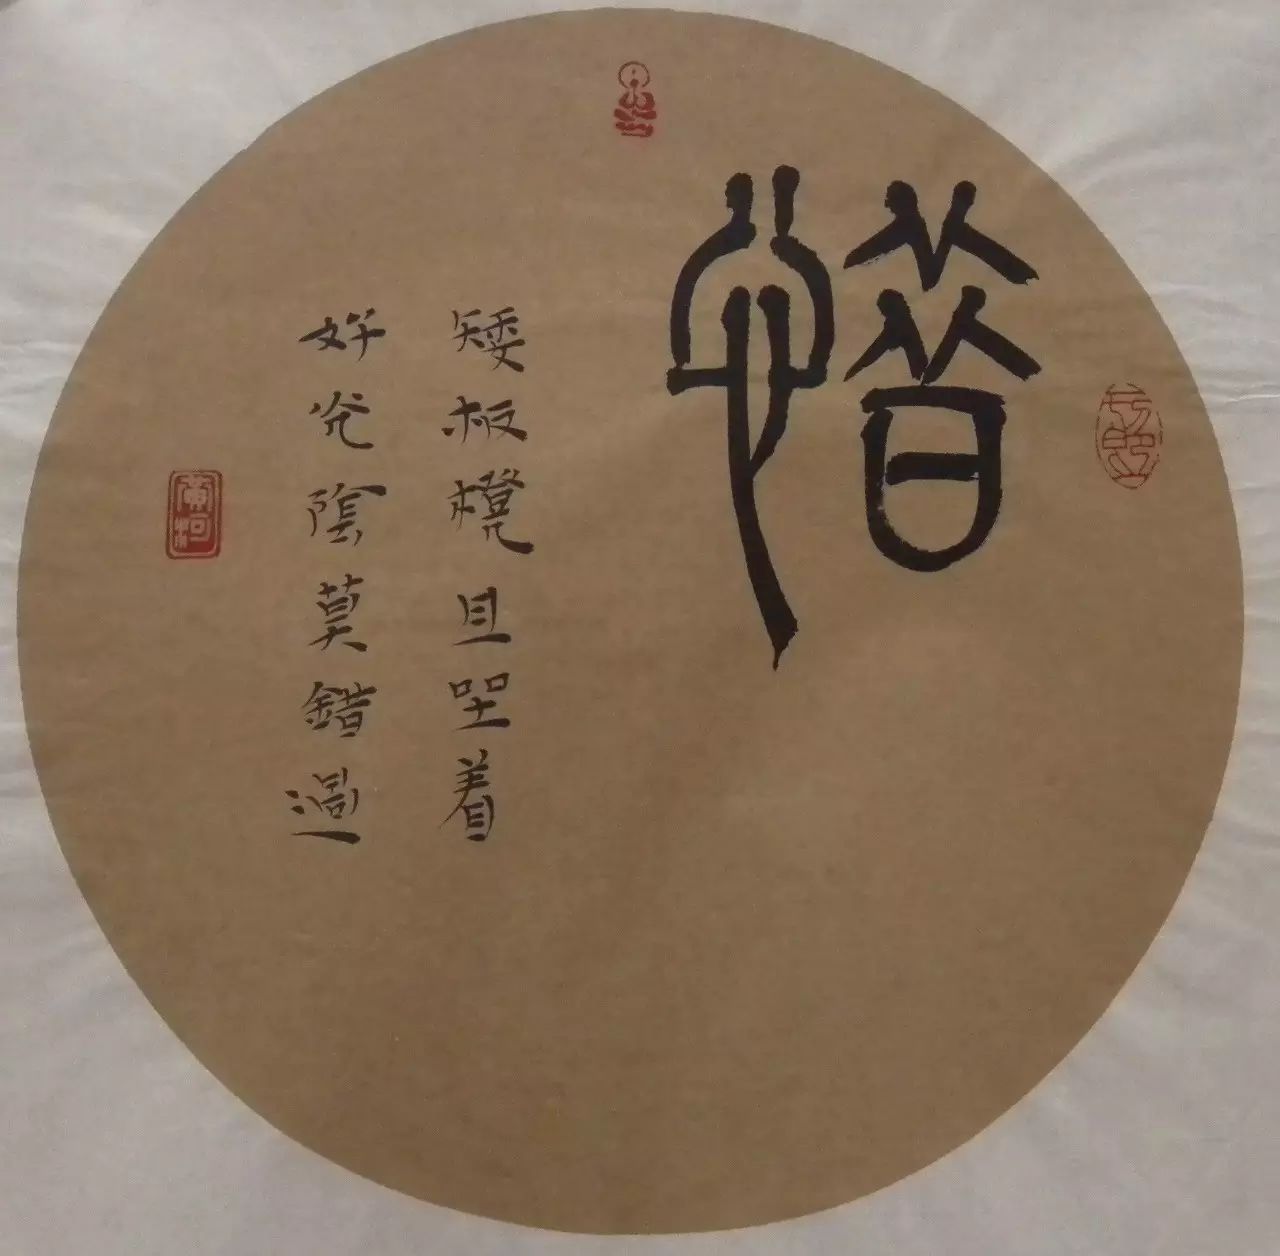 惜
矮板櫈且坐着
好光陰莫錯過